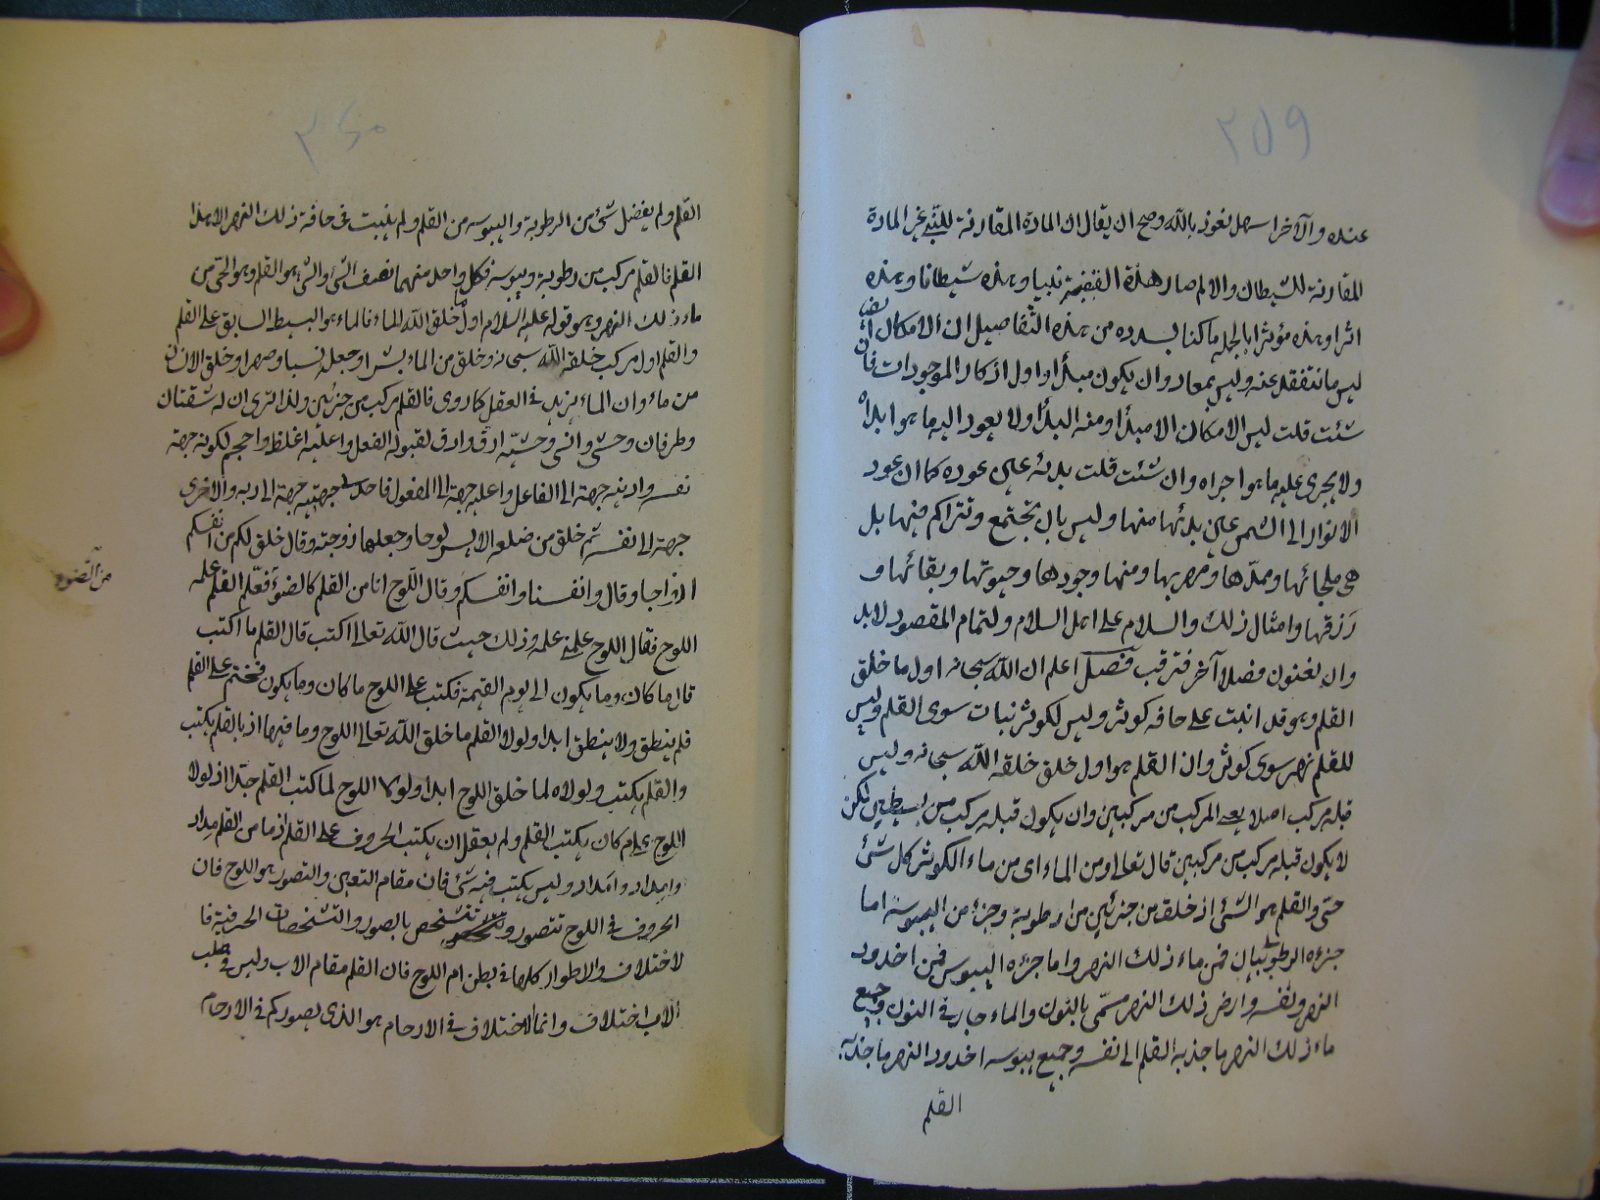 ٢٥٩
عنده والآخر اسهل نعوذ بالله وصح ان يقال ان المادة المقارنة للنبي غير المادة
المقارنة للشيطان والا لم صار هذه القبضة نبيا وهذه شيطانا وهذه
اثرا وهذه مؤثرا بالجملة ما كنا بصدده من هذه التفاصيل ان الامكان
ليس ما نتفقد عنه وليس بمعاد وان يكون مبدأ اول اذكار الموجودات فان
شئت قلت ليس الامكان الا مبدأ ومنه البدأ ولا يعود اليه ما هو ابداه
ولا يجري عليه ما هو اجراه وان شئت قلت بدئه عين عوده كما ان عود
الانوار الى الشمس عين بدئها منها وليس بان تجتمع وتتراكم فيها بل
هي ملجائها وممدها ومهربها ومنها وجودها وحيوتها وبقائها و
رزقها وامثال ذلك والسلام على اهل السلام ولتمام المقصود لابد
وان نعنون فصلا آخر فترقب فصل اعلم ان الله سبحانه اول ما خلق
القلم وهو قد انبت على حافة كوثر وليس لكوثر نبات سوى القلم وليس
للقلم نهر سوى كوثر وان القلم هو اول خلق خلقه الله سبحانه وليس
قبله مركب اصلا المركب من مركبين وان يكون قبله مركب من بسيطين لكن
لا يكون قبله مركب من مركبين قال تعالى ومن الماء اى من ماء الكوثر كل شئ
حي والقلم هو الشئ اذ خلق من جزئين من رطوبة وجزء من اليبوسة اما
جزءه الرطوبة فمن ماء ذلك النهر واما جزءه اليبوس فمن اخدود
النهر ونفسه وارض ذلك النهر مسمى بالنون والماء جار في النون وجميع
ماء ذلك النهر ما جذبه القلم الى نفسه وجميع يبوسة اخدود النهر ما جذبه
القلم
٢٦٠
القلم ولم يفضل شئ من الرطوبة واليبوسة من القلم ولم ينبت في حافة ذلك النهر الا هذا
القلم فالقلم مركب من رطوبة ويبوسة فكل واحد منهما نصف الشئ والشئ هو القلم وهو الحي من
ماء ذلك النهر وهو قوله عليه السلام اول ما خلق الله الماء فالماء هو البسيط السابق على القلم
والقلم اول مركب خلقه الله سبحانه وخلق من الماء بشرا وجعله نسبا وصهرا وخلق الانسان
من ماء وان الماء يزيد في العقل كما روى فالقلم مركب من جزئين ولذا ترى ان له شقتان
وطرفان وحشي وانسي وحشيه ارق وادق لقبوله الفعل واعليه اغلظ واحجم لكونه جهة
نفسه وادنيه جهة الى الفاعل واعليه جهة الى المفعول فاحدى جهتيه جهة الى ربه والاخرى
جهة الى نفسه ثم خلق من ضلعه الايسر لوحا وجعلها زوجته وقال خلق لكم من انفسكم
ازواجا وقال وانفسنا وانفسكم وقال اللوح انا من القلم كالضوء فعلم القلم علمه
من الضوء
اللوح فقال اللوح علمه وذلك حيث قال الله تعالى اكتب قال القلم ما اكتب
قال ما كان وما يكون الى يوم القيمة فكتب على اللوح ما كان وما يكون فختم على القلم
فلم ينطق ولا ينطق ابدا ولولا القلم ما خلق الله تعالى اللوح وما فيها اذ بالقلم يكتب
والقلم يكتب ولولاه لما خلق اللوح ابدا ولولا اللوح لما كتب القلم جدا اذ لولا
اللوح كان يكتب القلم ولم يعقل ان يكتب الحروف على القلم اذ ما من القلم مداد
وامداد وليس يكتب فيه شئ فان مقام التعين والتصور هو اللوح فان
الحروف في اللوح تتصور وتتشخص بالصور والتشخصات الحرفية فا
لاختلاف والاطوار كلها في بطن ام اللوح فان القلم مقام الاب وليس في صلب
الاب اختلاف وانما الاختلاف في الارحام هو الذى يصوركم في الارحام